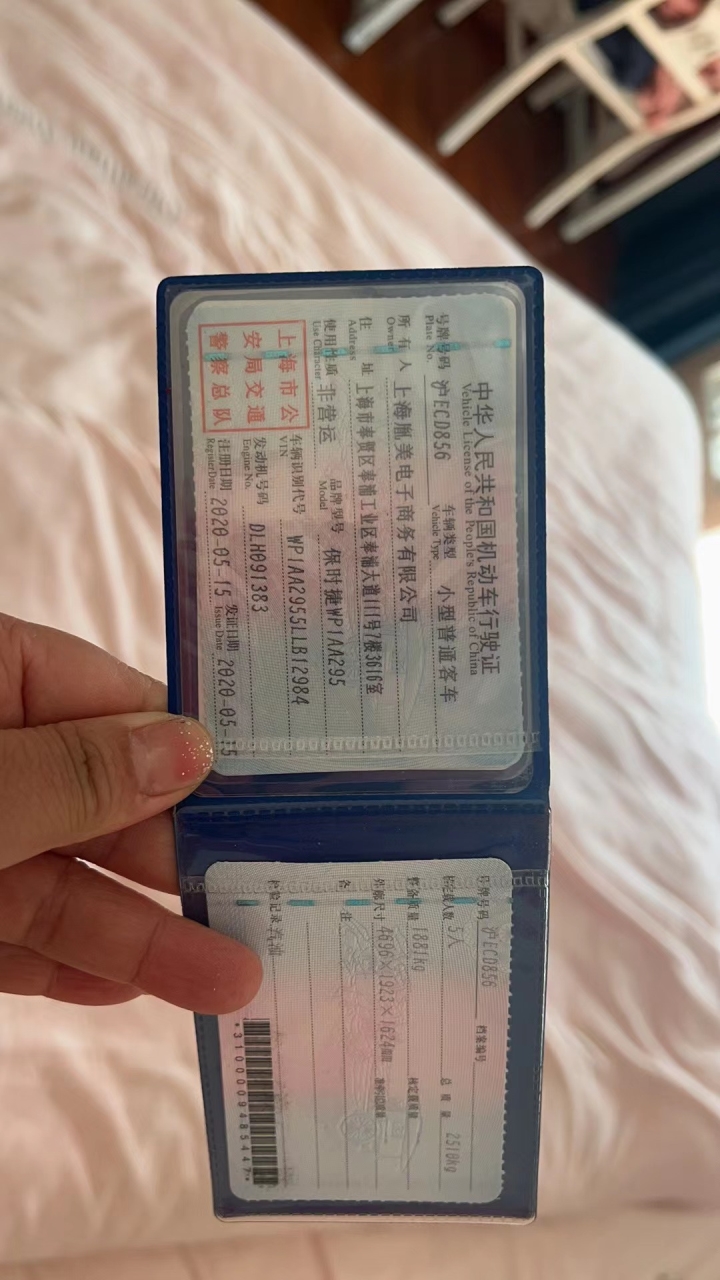 中华人民共和国机动车行驶证
Vehicle License of the People's Republic of China
号牌号码 沪ECD856 车辆类型 小型普通客车
Plate No. Vehicle Type
所有人 上海胤美电子商务有限公司
Owner
住址 上海市奉贤区奉浦工业区奉浦大道111号7楼3616室
Address
使用性质 非营运 品牌型号 保时捷WP1AA295
Use Character Model
上海市公安局交通警察总队
车辆识别代号 WP1AA2955LLB12984
VIN
发动机号码 DLH091383
Engine No.
注册日期 2020-05-15 发证日期 2020-05-15
Register Date Issue Date
号牌号码 沪ECD856 档案编号
核定载人数 5人 总质量 2510kg
整备质量 1881kg 核定载质量
外廓尺寸 4696×1923×1624mm 准牵引总质量
备注
检验记录 汽油
*3100009485447*